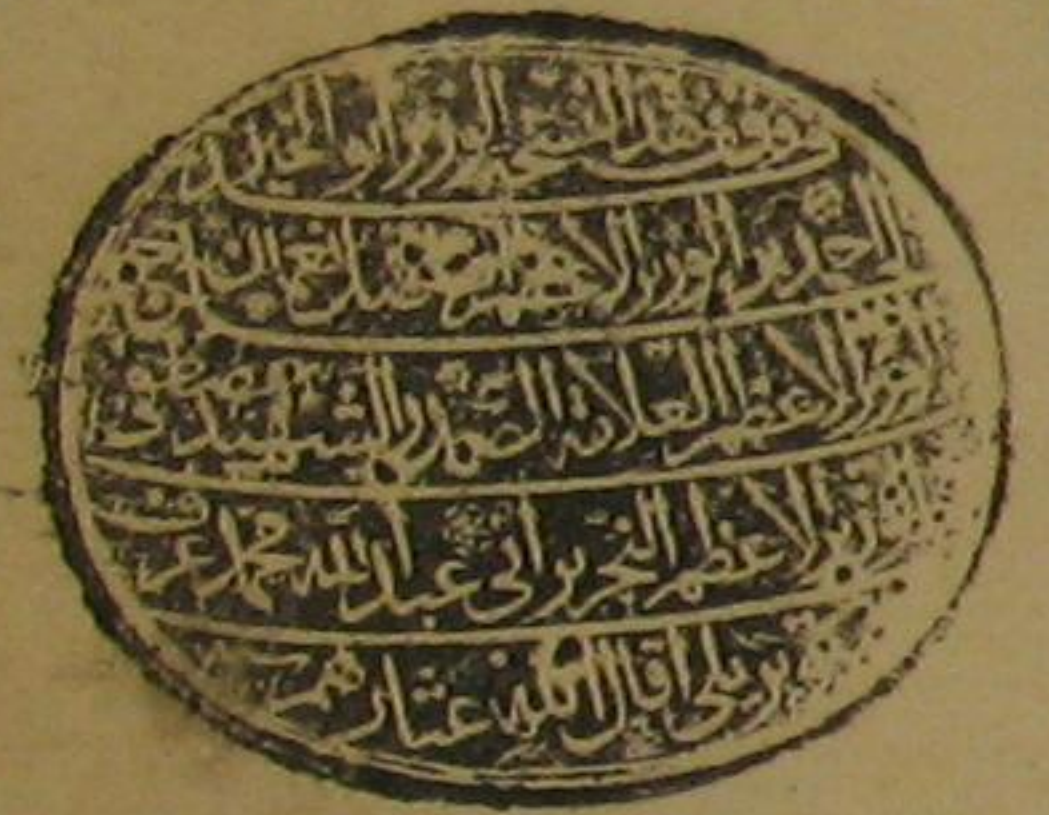 وقف هذه النسخة الوزير ابو الخير
احمد بن الوزير الاعظم نعمان بن
الوزير الاعظم العلامة الصدر الشهيد مصطفى
الوزير الاعظم النحرير ابي عبد الله محمد عرف
بكوپريلى اقال الله عثارهم